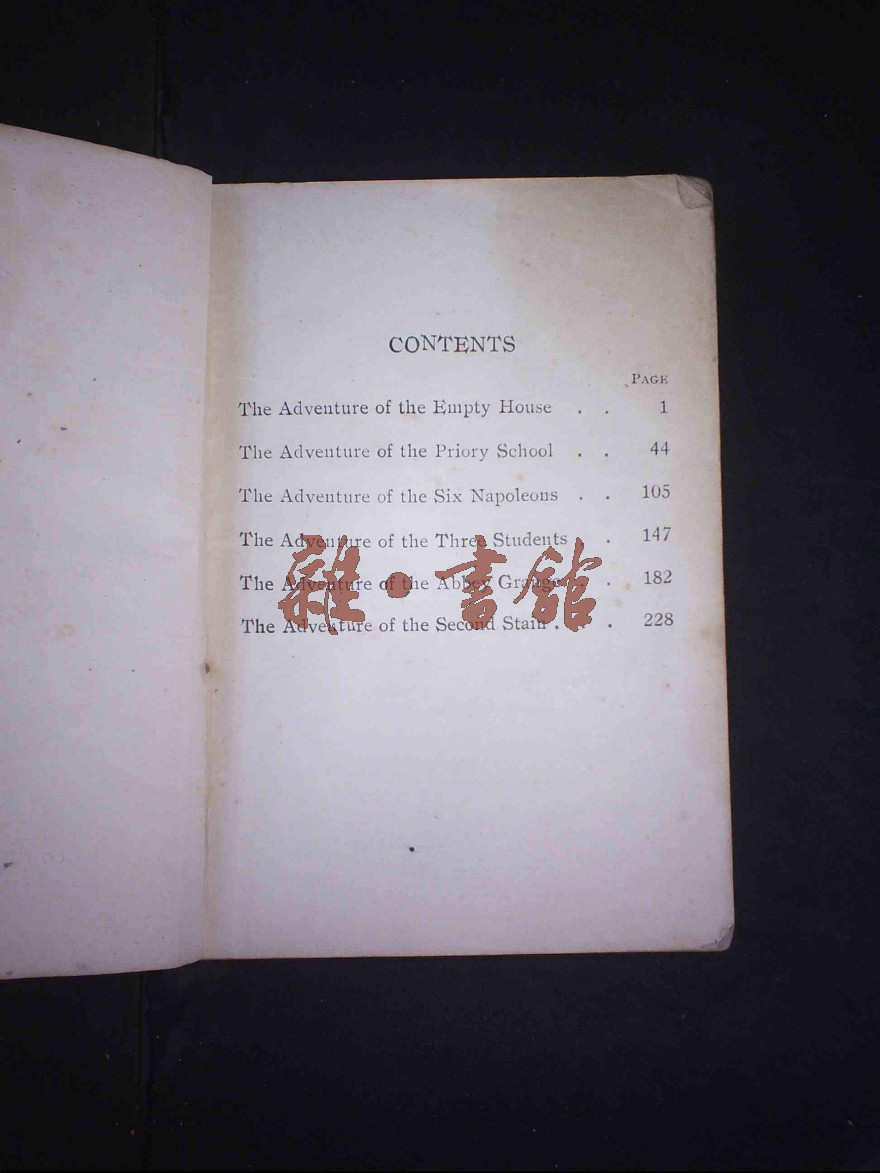 CONTENTS
PAGE
The Adventure of the Empty House . . 1
The Adventure of the Priory School . . 44
The Adventure of the Six Napoleons . . 105
The Adventure of the Three Students . 147
The Adventure of the Abbey Grange . 182
The Adventure of the Second Stain . . . 228
雜·書館